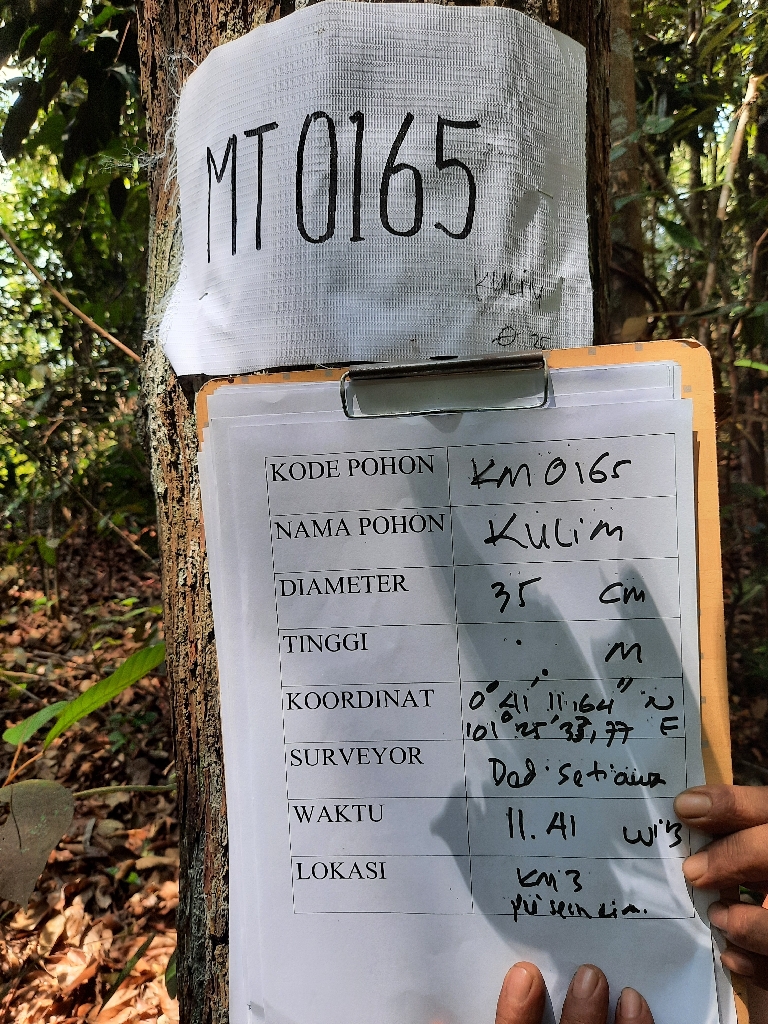 MT0165
KULIM
KODE POHON KM 0165
NAMA POHON KULIM
DIAMETER 35 cm
TINGGI M
KOORDINAT 0° 41' 11,164" N
101° 25' 33,77 E
SURVEYOR Dedi Setiawan
WAKTU 11.41 WIB
LOKASI KM 3